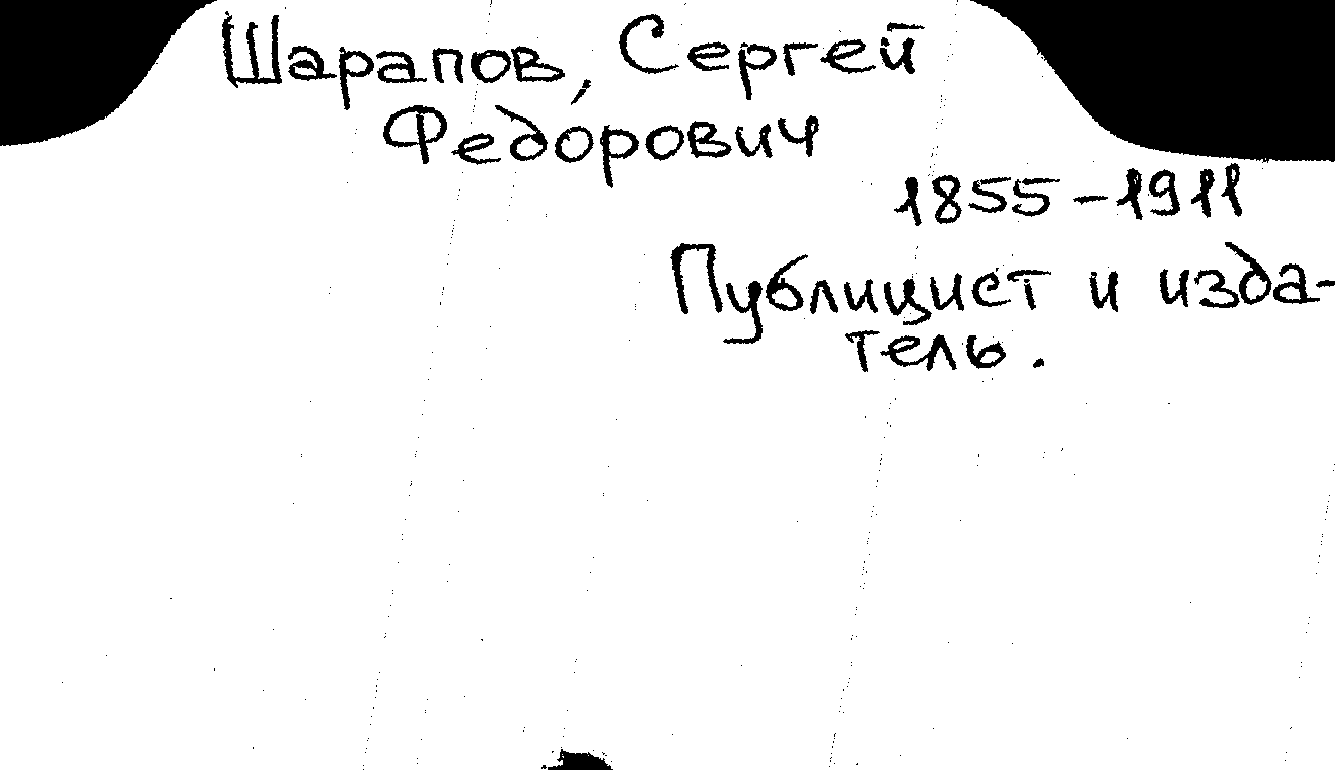 Шарапов, Сергей
Федорович
1855-1911
Публицист и изда-
тель.